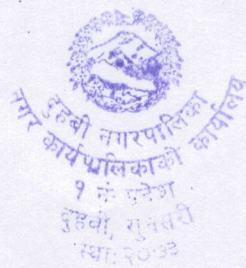 दुहबी नगरपालिका
नगर कार्यपालिकाको कार्यालय
१ नं. प्रदेश
दुहवी, सुनसरी
स्था: २०७३